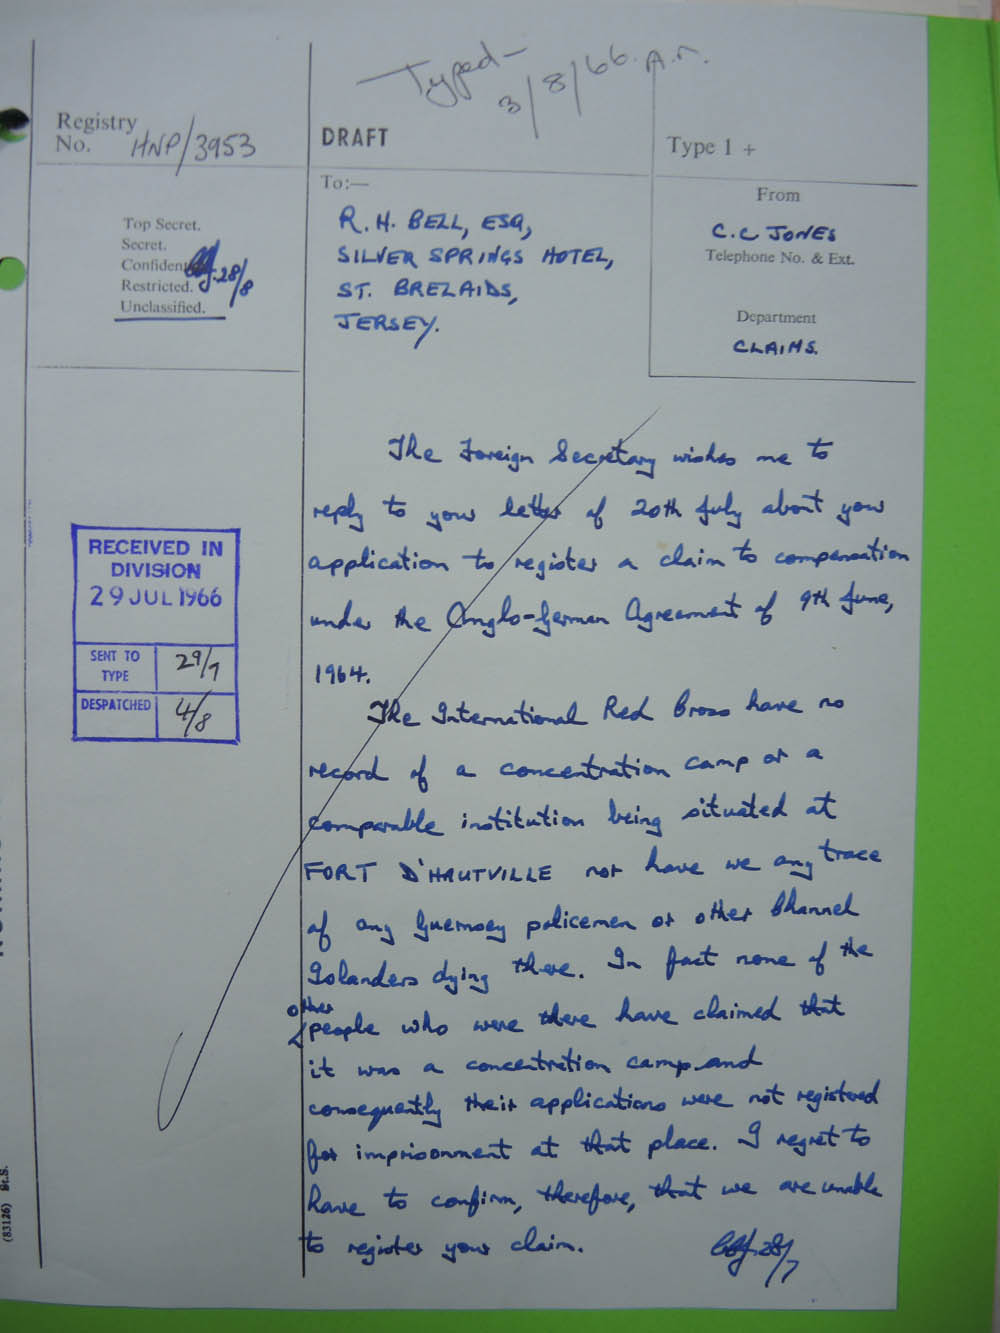 Typed - 3/8/66. A.r.
Registry
No. HNP/3953
DRAFT
Type 1 +
To:—
R. H. BELL, ESQ,
SILVER SPRINGS HOTEL,
ST. BRELAIDS,
JERSEY.
From
C.C JONES
Telephone No. & Ext.
Department
CLAIMS.
Top Secret.
Secret.
Confiden
Restricted.
Unclassified.
28/8
RECEIVED IN
DIVISION
29 JUL 1966
SENT TO
TYPE 29/7
DESPATCHED 4/8
The Foreign Secretary wishes me to
reply to your letter of 20th July about your
application to register a claim to compensation
under the Anglo-German Agreement of 9th June,
1964.
The International Red Cross have no
record of a concentration camp or a
comparable institution being situated at
FORT D'HAUTVILLE nor have we any trace
of any Guernsey policemen or other Channel
Islanders dying there. In fact none of the
other
people who were there have claimed that
it was a concentration camp and
consequently their applications were not registered
for imprisonment at that place. I regret to
have to confirm, therefore, that we are unable
to register your claim.
CCJ. 28/7
(83126) St.S.